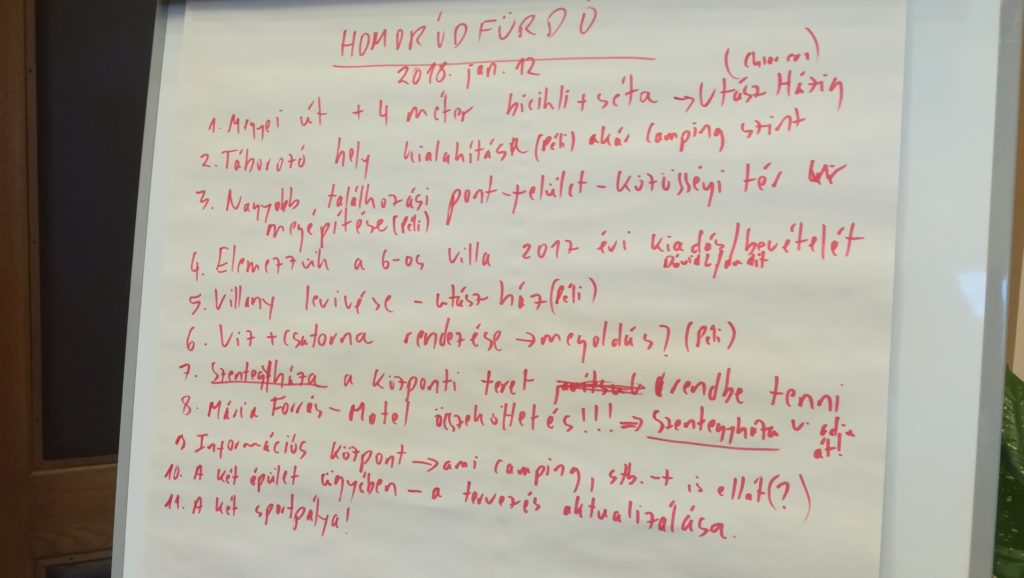 HOMORÓDFÜRDŐ
2018. jan. 12
1. Megyei út + 4 méter bicikli + séta → Utász Házig
2. Táborozó hely kialakítása (Péli) akár camping szint
3. Nagyobb találkozási pont-felület - közösségi tér
megépítése (Péli)
4. Elemezzük a 6-os villa 2017 évi kiadás/bevételét
5. Villany levivése - utász ház (Péli)
6. Víz + csatorna rendezése → megoldás? (Péli)
7. Szentegyháza a központi teret rendbe tenni
8. Mária Forrás - Motel összeköttetés!!! ⇒ Szentegyháza adja
át!
9. Információs központ → ami camping, stb.-t is ellát (?)
10. A két épület ügyében - a tervezés aktualizálása.
11. A két sportpálya!